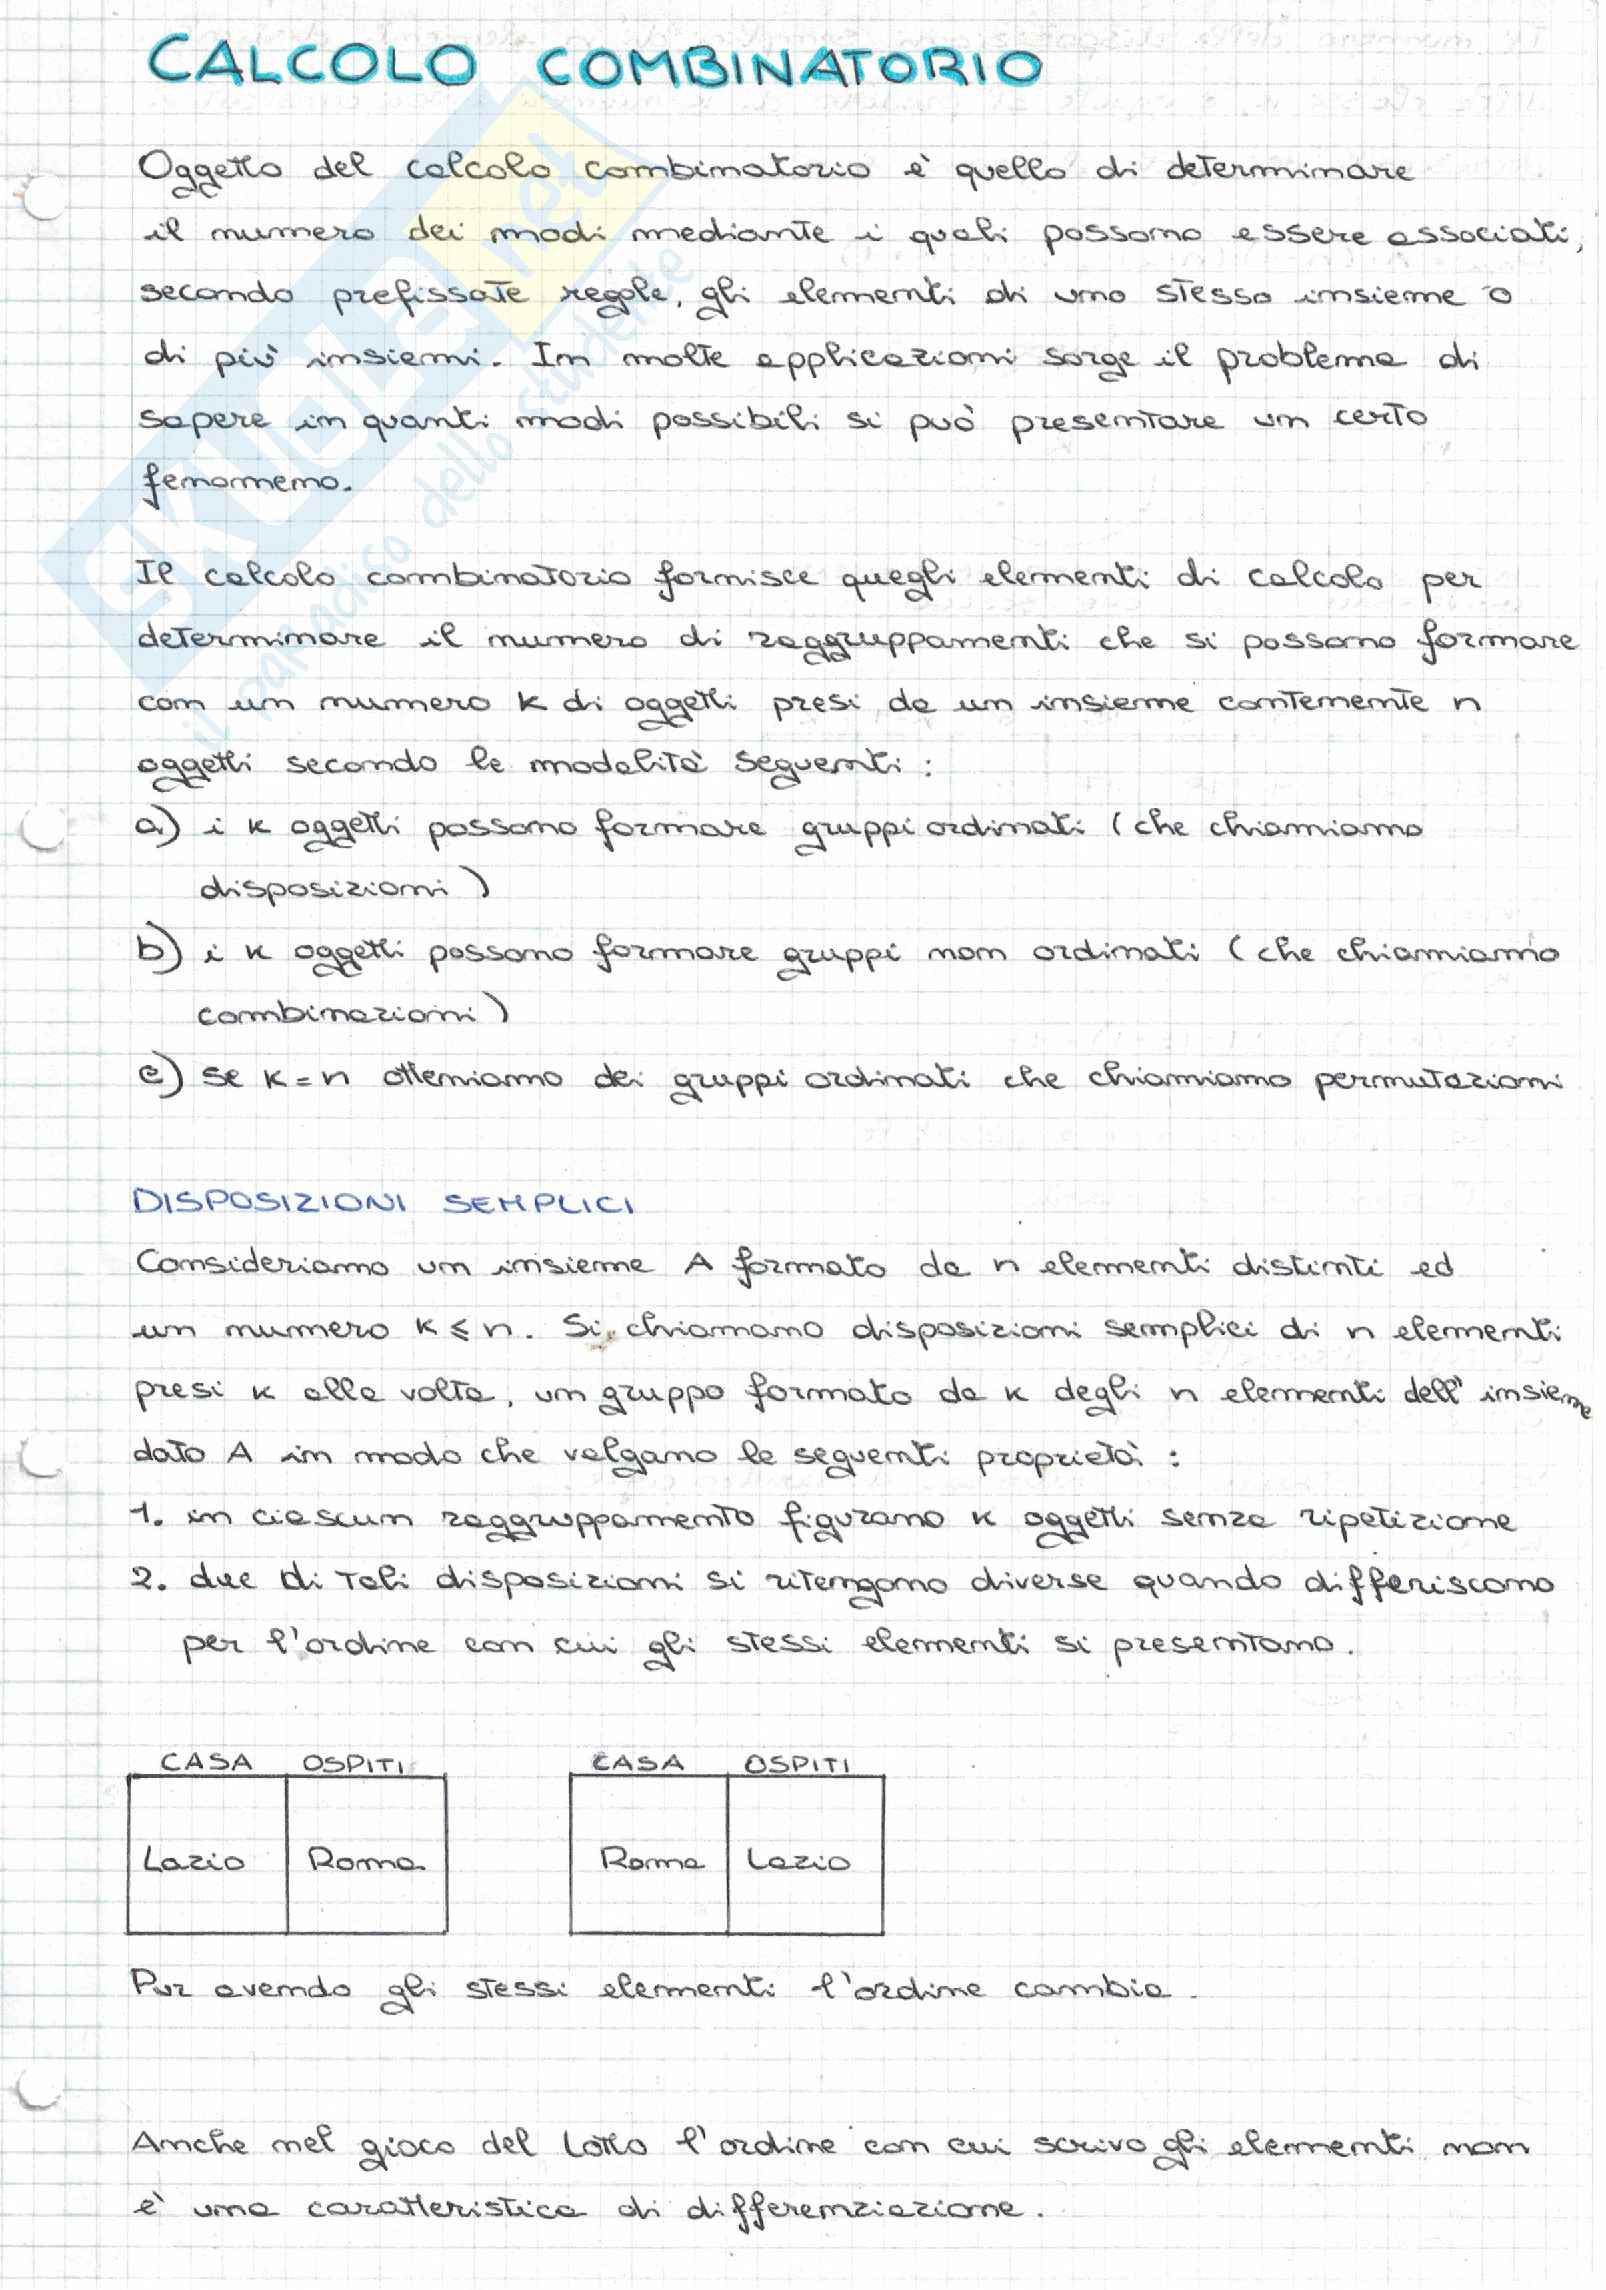 CALCOLO COMBINATORIO
Oggetto del calcolo combinatorio è quello di determinare
il numero dei modi mediante i quali possono essere associati,
secondo prefissate regole, gli elementi di uno stesso insieme o
di più insiemi. In molte applicazioni sorge il problema di
sapere in quanti modi possibili si può presentare un certo
fenomeno.
Il calcolo combinatorio fornisce quegli elementi di calcolo per
determinare il numero di raggruppamenti che si possono formare
con un numero k di oggetti presi da un insieme contenente n
oggetti secondo le modalità seguenti:
a) i k oggetti possono formare gruppi ordinati (che chiamiamo
disposizioni)
b) i k oggetti possono formare gruppi non ordinati (che chiamiamo
combinazioni)
c) se k=n otteniamo dei gruppi ordinati che chiamiamo permutazioni
DISPOSIZIONI SEMPLICI
Consideriamo un insieme A formato da n elementi distinti ed
un numero k ≤ n. Si chiamano disposizioni semplici di n elementi
presi k alla volta, un gruppo formato da k degli n elementi dell'insieme
dato A in modo che valgano le seguenti proprietà:
1. in ciascun raggruppamento figurano k oggetti senza ripetizione
2. due di tali disposizioni si ritengono diverse quando differiscono
per l'ordine con cui gli stessi elementi si presentano.
CASA OSPITI CASA OSPITI
Lazio Roma Roma Lazio
Pur avendo gli stessi elementi l'ordine cambia.
Anche nel gioco del Lotto l'ordine con cui scrivo gli elementi non
è una caratteristica di differenziazione.
SKUOLA.net
il paradiso dello studente